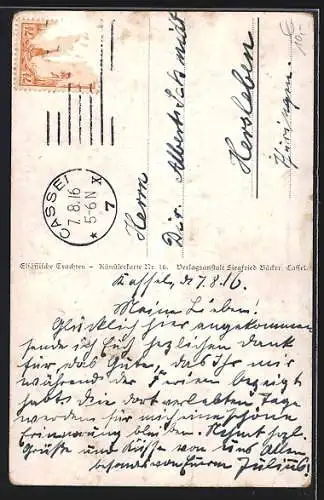 7½ 7½
CASSEL
7.8.16
5-6 N
* 7 X
Herrn
Dir. Albert Schmidt
Hersleben
Thüringen.
10,-
Elsässische Trachten – Künstlerkarte Nr. 16. Verlagsanstalt Siegfried Bäcker, Cassel.
Kassel, d 7.8.16.
Meine Lieben!
Glücklich hier angekommen
sende ich Euch herzlichen Dank
für das Gute, das Ihr mir
während der Ferien bezeigt
habt. Die dort verlebten Tage
werden für mich eine schöne
Erinnerung bleiben. Nehmt hzl.
Grüße und Küsse von uns Allen
besonders von Eurem Julius!